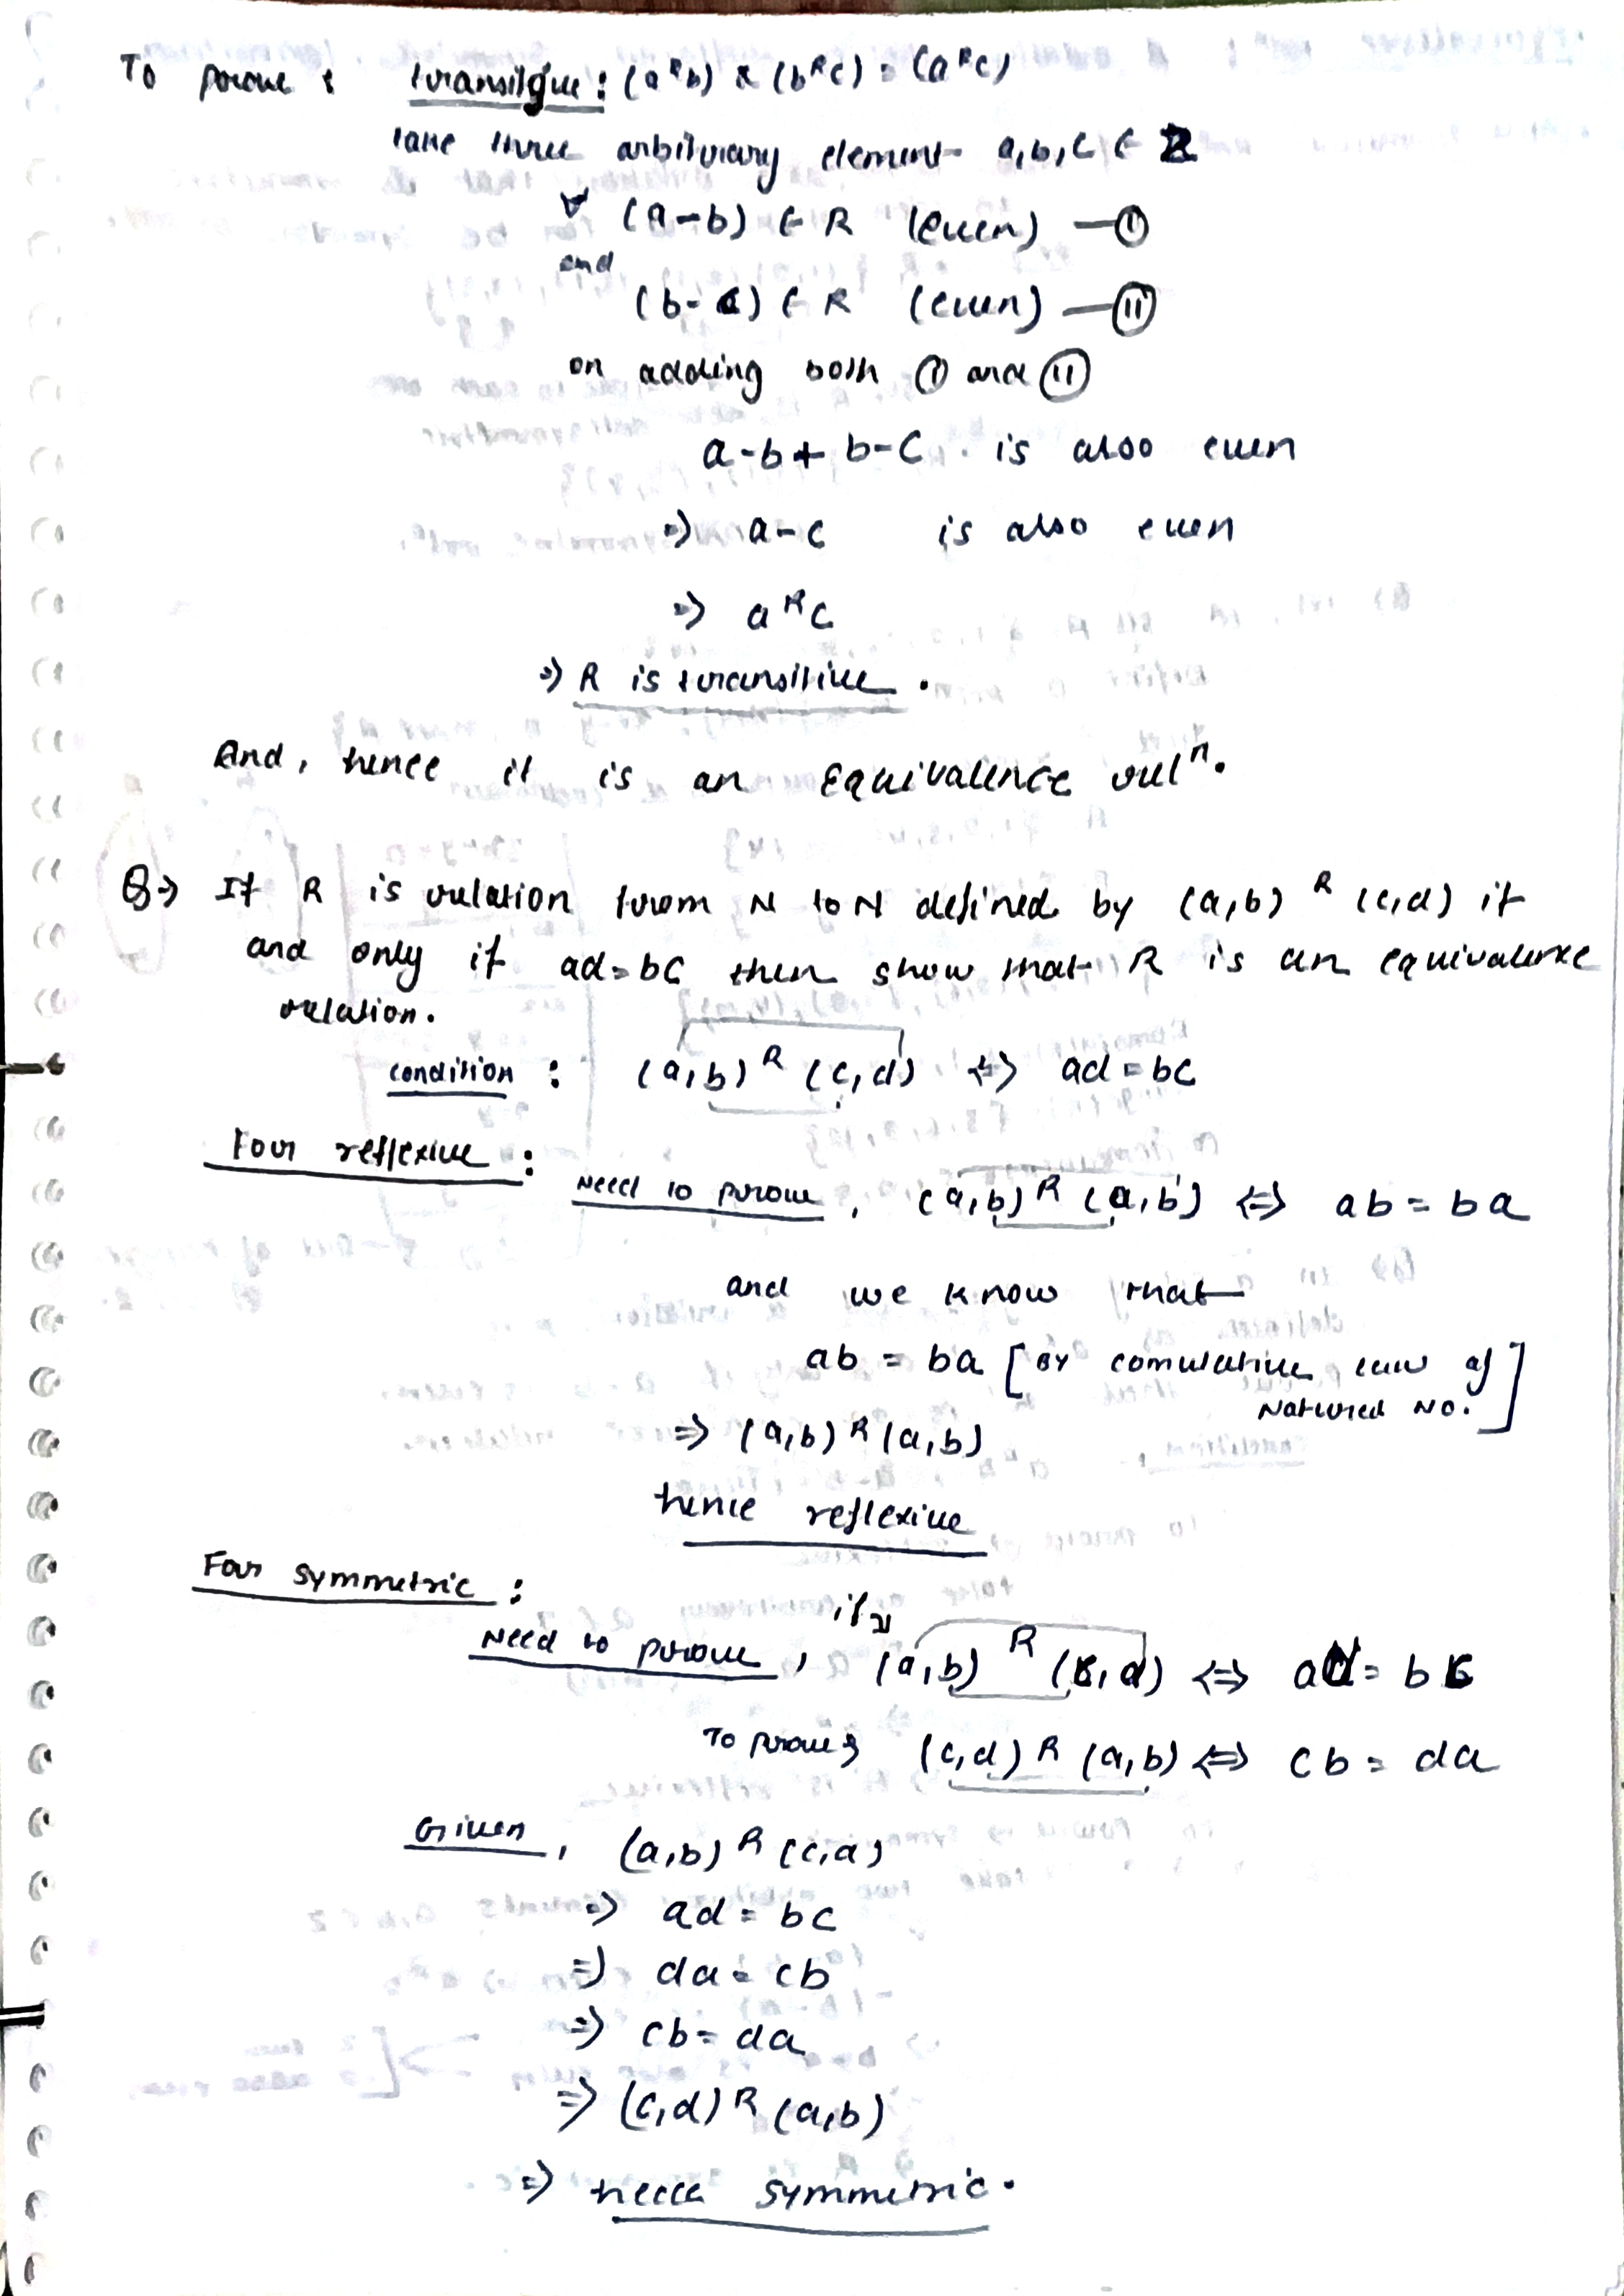 To prove : transitive : (aᴿb) & (bᴿc) = (aᴿc)
take three arbitrary element a,b,c ∈ Z
∀ (a-b) ∈ R (even) —Ⓘ
and
(b-c) ∈ R (even) —(II)
on adding both Ⓘ and (II)
a-b+b-c is also even
=> a-c is also even
=> aᴿc
=> R is transitive.
And, hence it is an Equivalence relⁿ.
Q=> If R is relation from N to N defined by (a,b) ᴿ (c,d) if
and only if ad=bc then show that R is an equivalence
relation.
condition : (a,b) ᴿ (c,d) <=> ad = bc
For reflexive :
Need to prove, (a,b) ᴿ (a,b) <=> ab = ba
and we know that
ab = ba [By comutative law of
Natural No.]
=> (a,b) ᴿ (a,b)
hence reflexive
For symmetric :
if
Need to prove, (a,b) ᴿ (c,d) <=> ad = bc
To prove (c,d) ᴿ (a,b) <=> cb = da
Given, (a,b) ᴿ (c,d)
=> ad = bc
=> da = cb
=> cb = da
=> (c,d) ᴿ (a,b)
=> hecce symmetric.